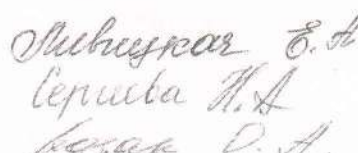 Ливицкая Е. А
Сершева Н. А
Козак О. А.